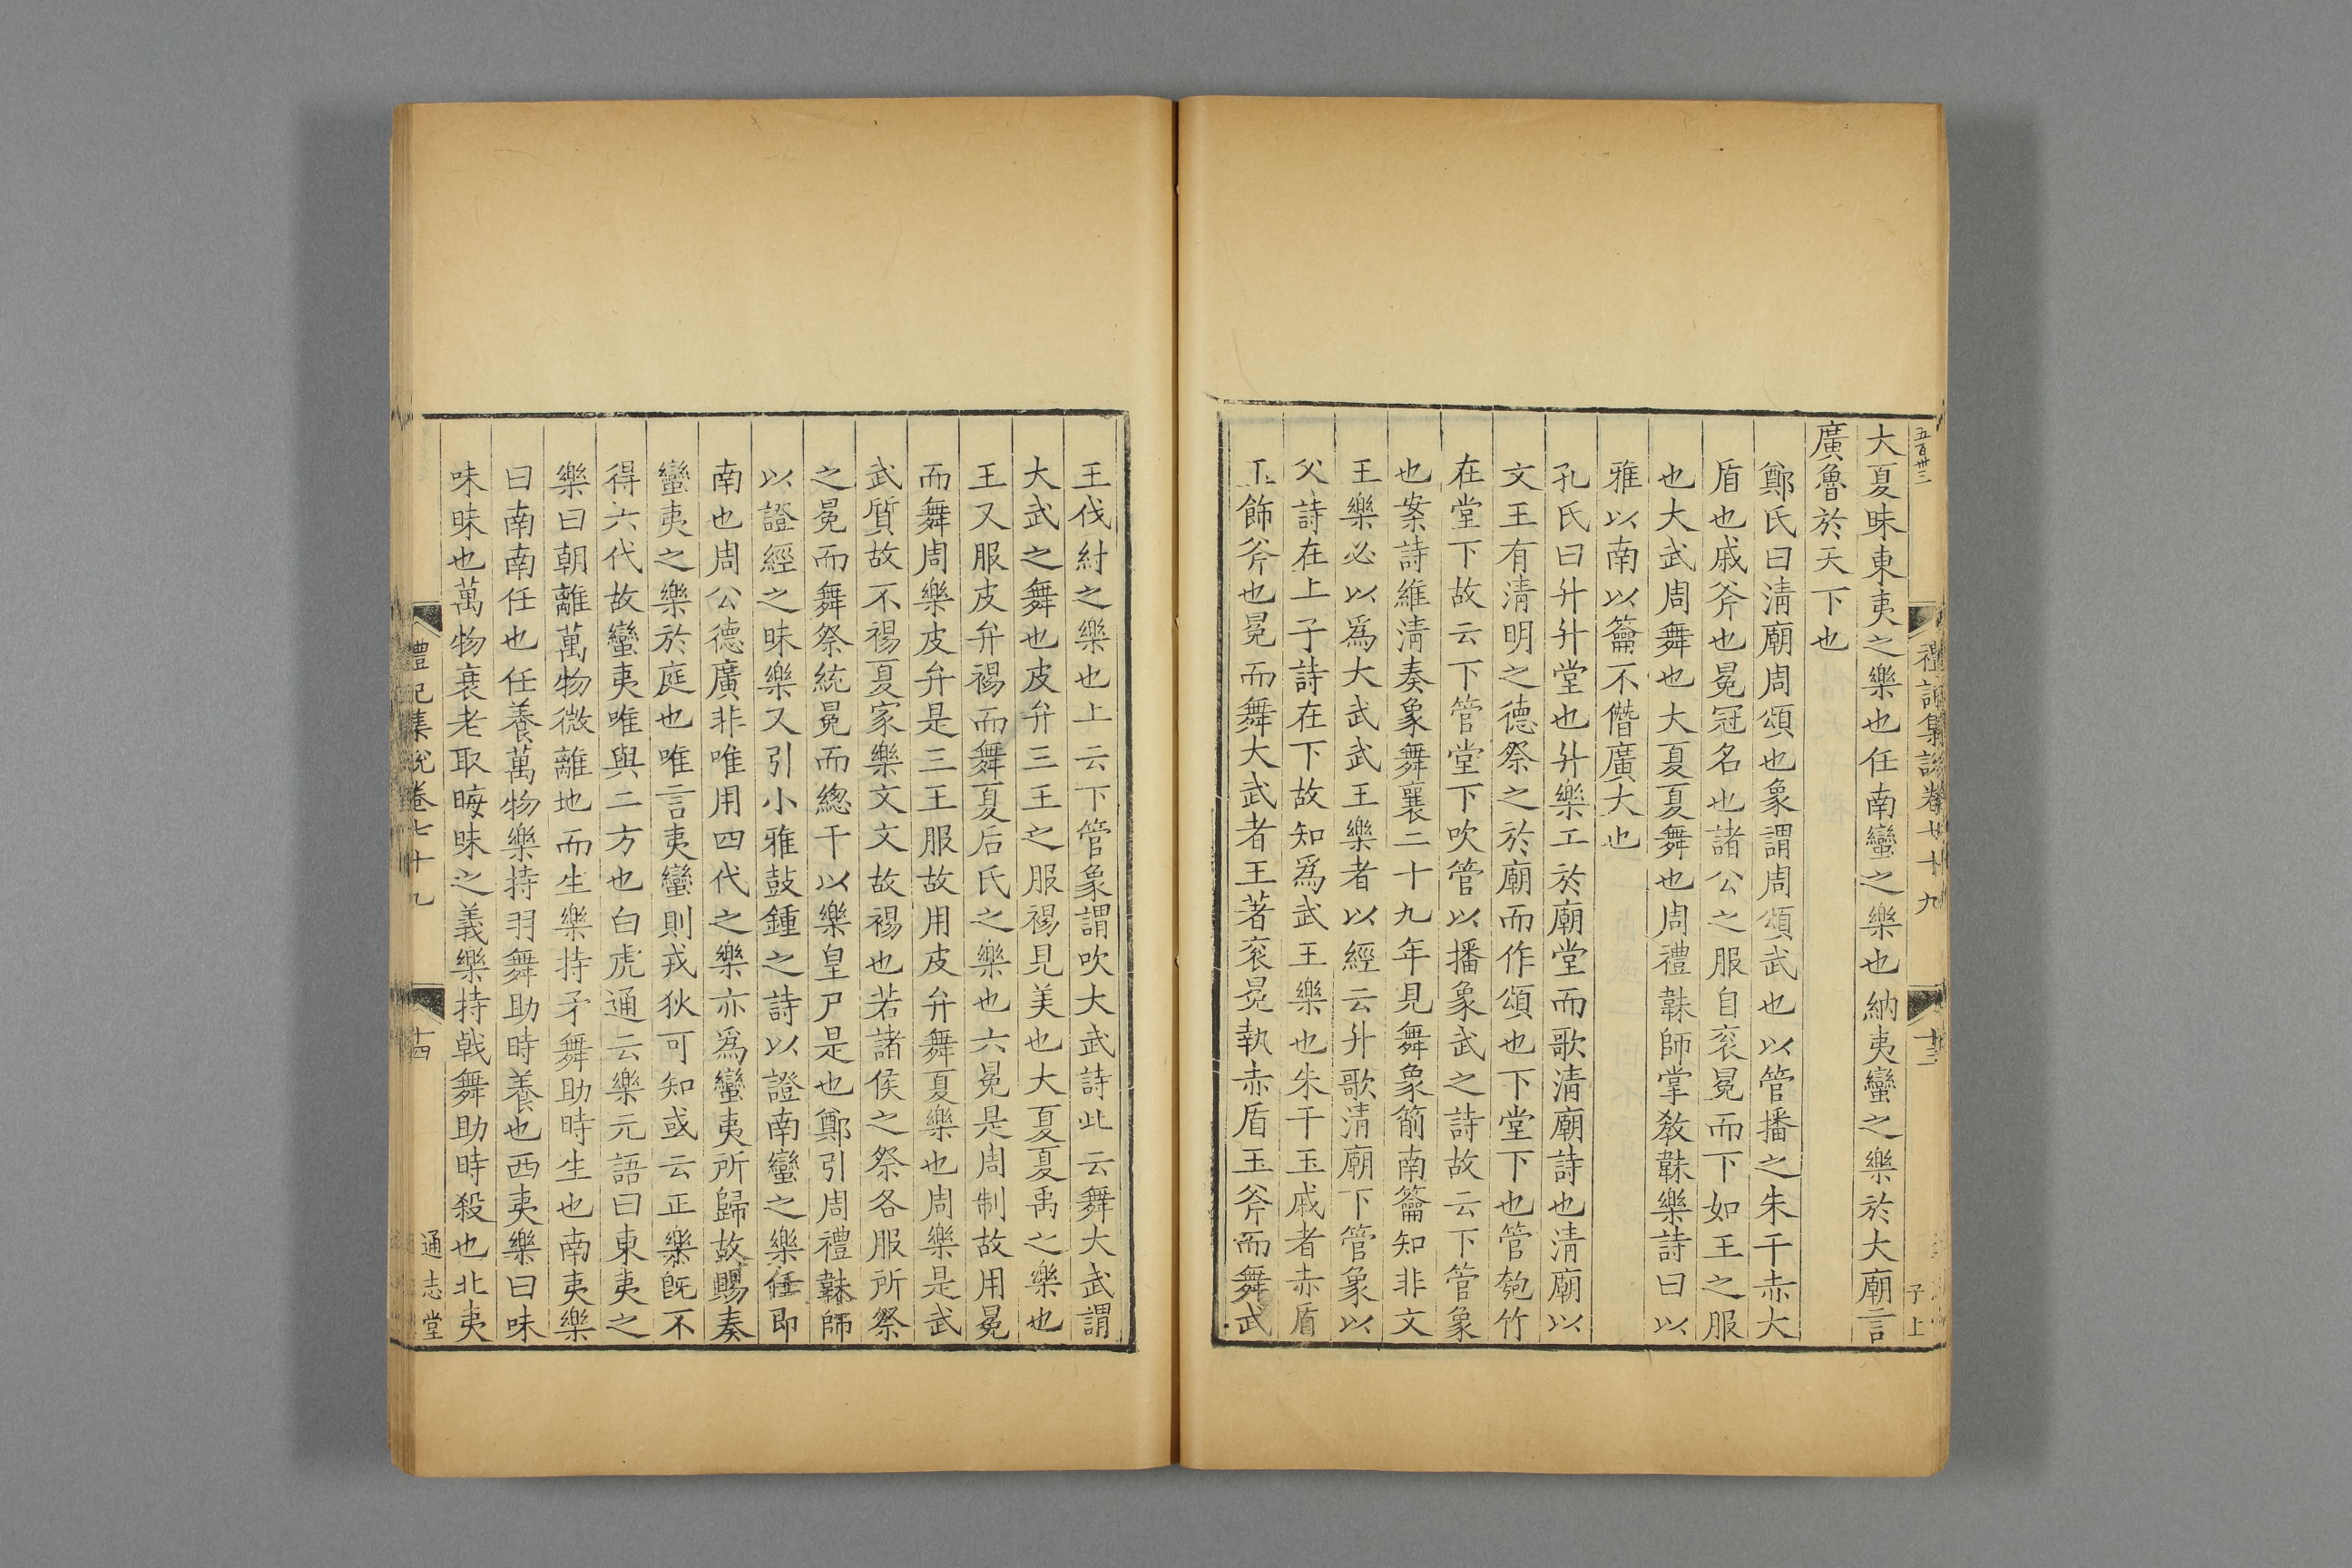 五百卅三
禮記集說卷七十九
十三
子上
大夏昧東夷之樂也任南蠻之樂也納夷蠻之樂於大廟言
廣魯於天下也
鄭氏曰淸廟周頌也象謂周頌武也以管播之朱干赤大
盾也戚斧也冕冠名也諸公之服自衮冕而下如王之服
也大武周舞也大夏夏舞也周禮韎師掌敎韎樂詩曰以
雅以南以籥不僭廣大也
孔氏曰升升堂也升樂工於廟堂而歌淸廟詩也淸廟以
文王有淸明之德祭之於廟而作頌也下堂下也管匏竹
在堂下故云下管堂下吹管以播象武之詩故云下管象
也案詩維淸奏象舞襄二十九年見舞象箾南籥知非文
王樂必以爲大武武王樂者以經云升歌淸廟下管象以
父詩在上子詩在下故知爲武王樂也朱干玉戚者赤盾
玉飾斧也冕而舞大武者王著衮冕執赤盾玉斧而舞武
王伐紂之樂也上云下管象謂吹大武詩此云舞大武謂
大武之舞也皮弁三王之服裼見美也大夏夏禹之樂也
王又服皮弁裼而舞夏后氏之樂也六冕是周制故用冕
而舞周樂皮弁是三王服故用皮弁舞夏樂也周樂是武
武質故不裼夏家樂文文故裼也若諸侯之祭各服所祭
之冕而舞祭統冕而緫干以樂皇尸是也鄭引周禮韎師
以證經之昧樂又引小雅鼓鍾之詩以證南蠻之樂任即
南也周公德廣非唯用四代之樂亦爲蠻夷所歸故賜奏
蠻夷之樂於庭也唯言夷蠻則戎狄可知或云正樂旣不
得六代故蠻夷唯與二方也白虎通云樂元語曰東夷之
樂曰朝離萬物微離地而生樂持矛舞助時生也南夷樂
曰南南任也任養萬物樂持羽舞助時養也西夷樂曰味
味昧也萬物衰老取晦昧之義樂持戟舞助時殺也北夷
禮記集說卷七十九
十四
通志堂